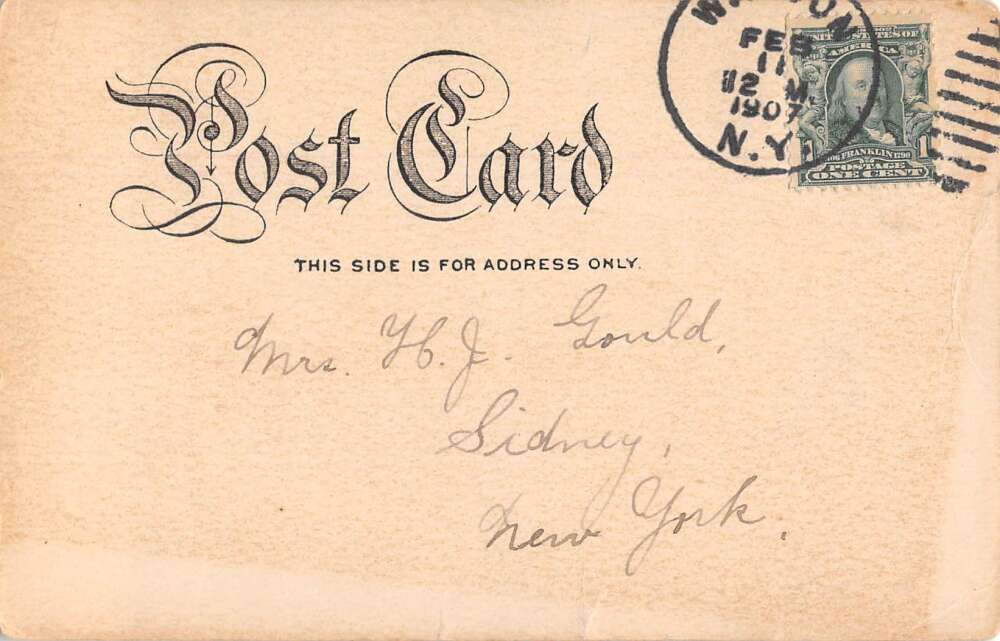 Post Card
THIS SIDE IS FOR ADDRESS ONLY.
WALTON
FEB
11
12 M.
1907
N.Y.
UNITED STATES OF
AMERICA
1 1
FRANKLIN 1790
POSTAGE
ONE CENT
Mrs. H. J. Gould,
Sidney,
New York.